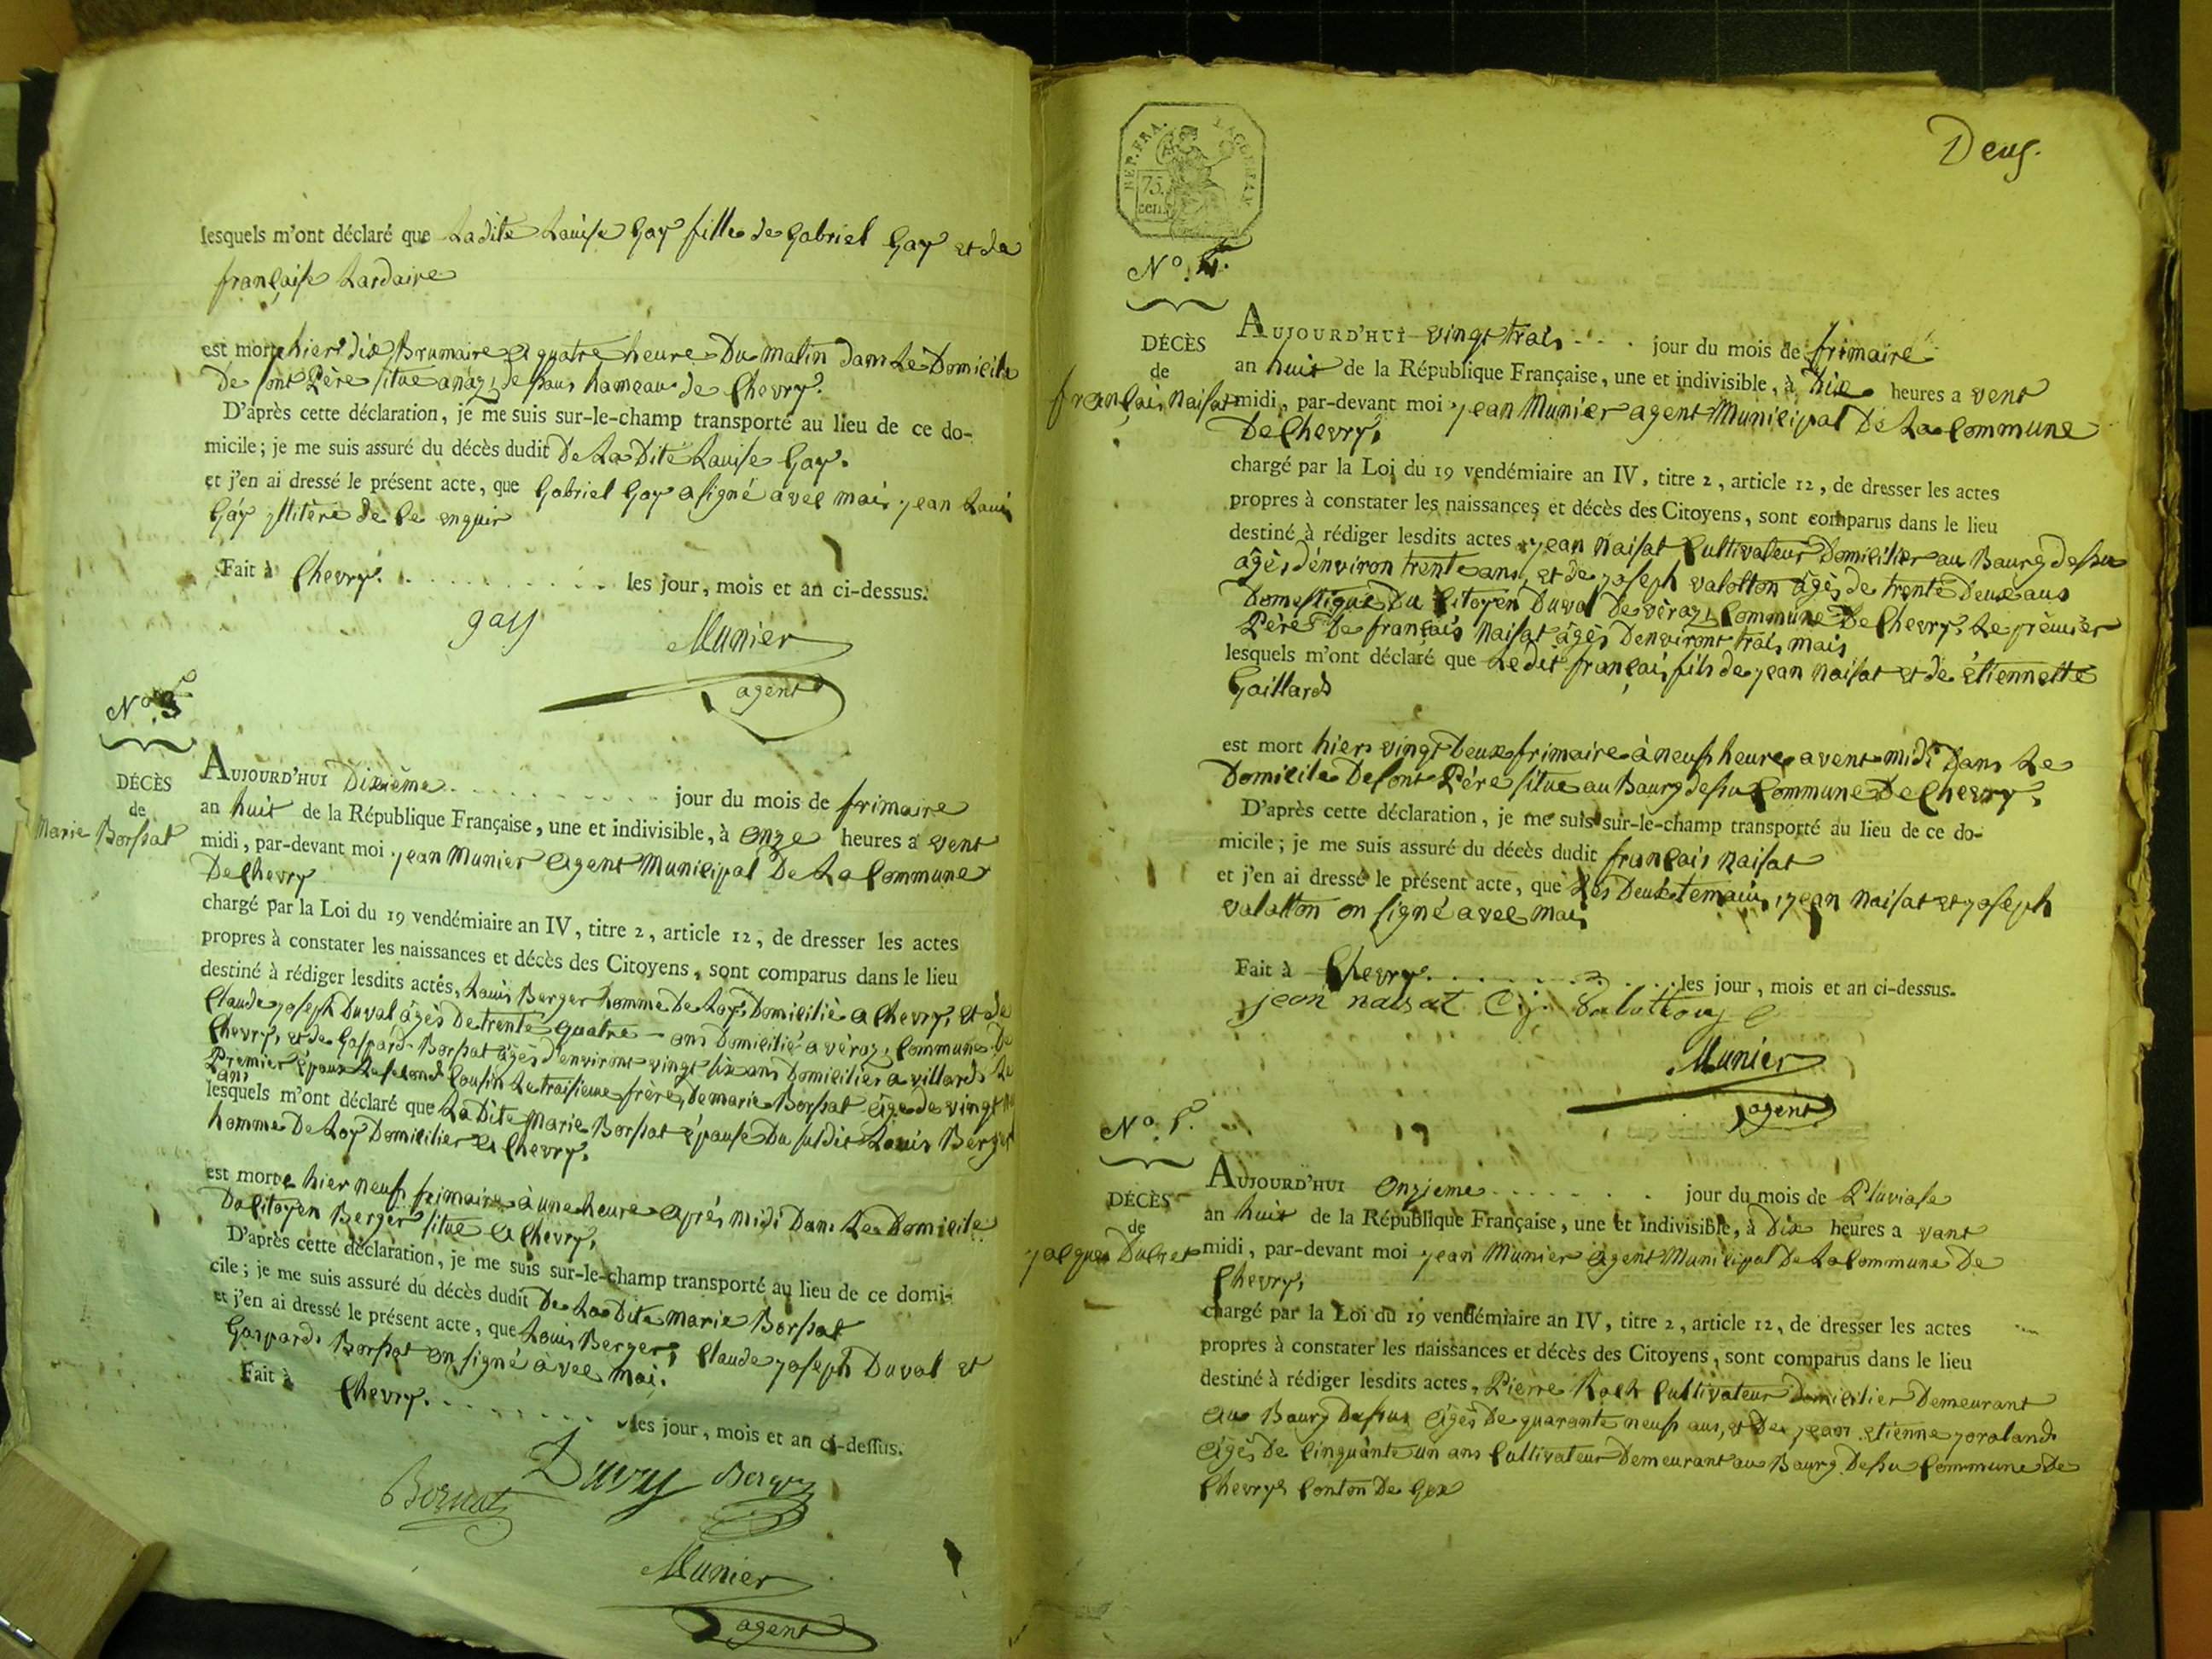 lesquels m'ont déclaré que Ladite Louise Gay fille de Gabriel Gay et de
françoise Lardaire
est morte hier dix Brumaire a quatre heure Du Matin dans Le Domicile
De sont Père situe anaz, desous hameau de Chevry.
D'après cette déclaration, je me suis sur-le-champ transporté au lieu de ce do-
micile; je me suis assuré du décès dudit De La Dite Louise Gay.
et j'en ai dressé le présent acte, que Gabriel Gay a signé avec moi, jean Louis
Gay de ce enquir
Fait à Chevry. les jour, mois et an ci-dessus.
gay Munier
agent
No. 3
AUJOURD'HUI Dixième jour du mois de frimaire
DÉCÈS
de
Marie Borssat
an huit de la République Française, une et indivisible, à onze heures a vent
midi, par-devant moi jean Munier agent Municipal De La Commune
De Chevry
chargé par la Loi du 19 vendémiaire an IV, titre 2, article 12, de dresser les actes
propres à constater les naissances et décès des Citoyens, sont comparus dans le lieu
destiné à rédiger lesdits actes, Louis Berger homme De Loy Domicilié a Chevry, et de
Claude joseph Duval âgès De trente quatre ans Domicilié a véraz, Commune De
Chevry, et de Gaspard Borssat âgès d'environt vingt six ans Domicilier a villard, Le
Premier épaux Le second Cousin Le traisieme frère, De marie Borssat âge de vingt
ans
lesquels m'ont déclaré que La Dite Marie Borssat épause Du susdit Louis Berger
homme De Loy Domicilier a Chevry.
est morte hier neuf frimaire à une heure après midi Dans Le Domicile
Du Citoyen Berger situe a Chevry,
D'après cette déclaration, je me suis sur-le-champ transporté au lieu de ce domi-
cile; je me suis assuré du décès dudit De La Dite Marie Borssat
et j'en ai dressé le présent acte, que Louis Berger, Claude joseph Duval et
Gaspard Borssat on signé avec moi.
Fait à Chevry. les jour, mois et an ci-dessus.
Munier
agent
Deux.
REP. FRA.
75.
cen.
No. 4.
AUJOURD'HUI vingt trois jour du mois de frimaire
DÉCÈS
de
françois Naisat
an huit de la République Française, une et indivisible, à dix heures a vent
midi, par-devant moi jean Munier agent Municipal De La Commune
De Chevry,
chargé par la Loi du 19 vendémiaire an IV, titre 2, article 12, de dresser les actes
propres à constater les naissances et décès des Citoyens, sont comparus dans le lieu
destiné à rédiger lesdits actes, jean Naisat Cultivateur Domicilier au Bourg dessu
âgès d'environ trente ans, et de joseph valotton âgès de trente Deux ans
Domestique Du Citoyen Duval De véraz, Commune De Chevry, Le premier
Père De françois Naisat âgès D'environt trois mois
lesquels m'ont déclaré que Ledit françois fils de jean Naisat et de étiennette
Gaillard
est mort hier vingt Deux frimaire à neuf heure a vent midi Dans Le
Domicile De sont Père situe au Bourg dessu Commune De Chevry,
D'après cette déclaration, je me suis sur-le-champ transporté au lieu de ce do-
micile; je me suis assuré du décès dudit françois Naisat
et j'en ai dressé le présent acte, que Les Deux temoin, jean Naisat et joseph
valotton on signé avec moi.
Fait à Chevry. les jour, mois et an ci-dessus.
jean naisat
Munier
agent
No. 5.
AUJOURD'HUI onzieme jour du mois de Pluviose
DÉCÈS
de
jacques Dubret
an huit de la République Française, une et indivisible, à Dix heures a vant
midi, par-devant moi jean Munier agent Municipal De La Commune De
Chevry,
chargé par la Loi du 19 vendémiaire an IV, titre 2, article 12, de dresser les actes
propres à constater les naissances et décès des Citoyens, sont comparus dans le lieu
destiné à rédiger lesdits actes, Pierre Roch Cultivateur Domicilier Demeurant
au Bourg Dessus âgès De quarante neuf ans, et De jean etienne joroland
âgès De Cinquante un ans Cultivateur Demeurant au Bourg Dessu Commune De
Chevry Conton De Gex